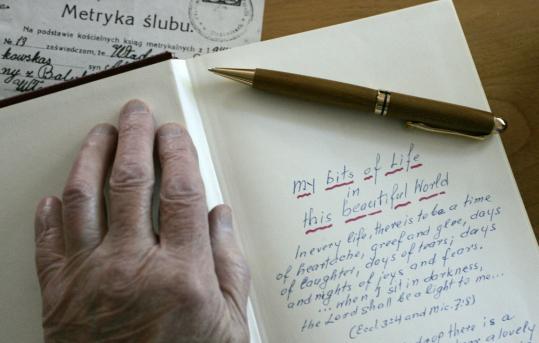 Metryka ślubu.
Na podstawie kościelnych ksiąg metrykalnych z
№ 19 zaświadczam, że
kowskas syn
ny z
my bits of Life
in
this beautiful World
In every life, there is to be a time
of heartache, greef and glee, days
of laughter, days of tears; days
and nights of joys and fears.
... when I sit in darkness,
the Lord shall be a light to me...
(Eccl 3:4 and Mic. 7:8)
drop there is a
a lovely